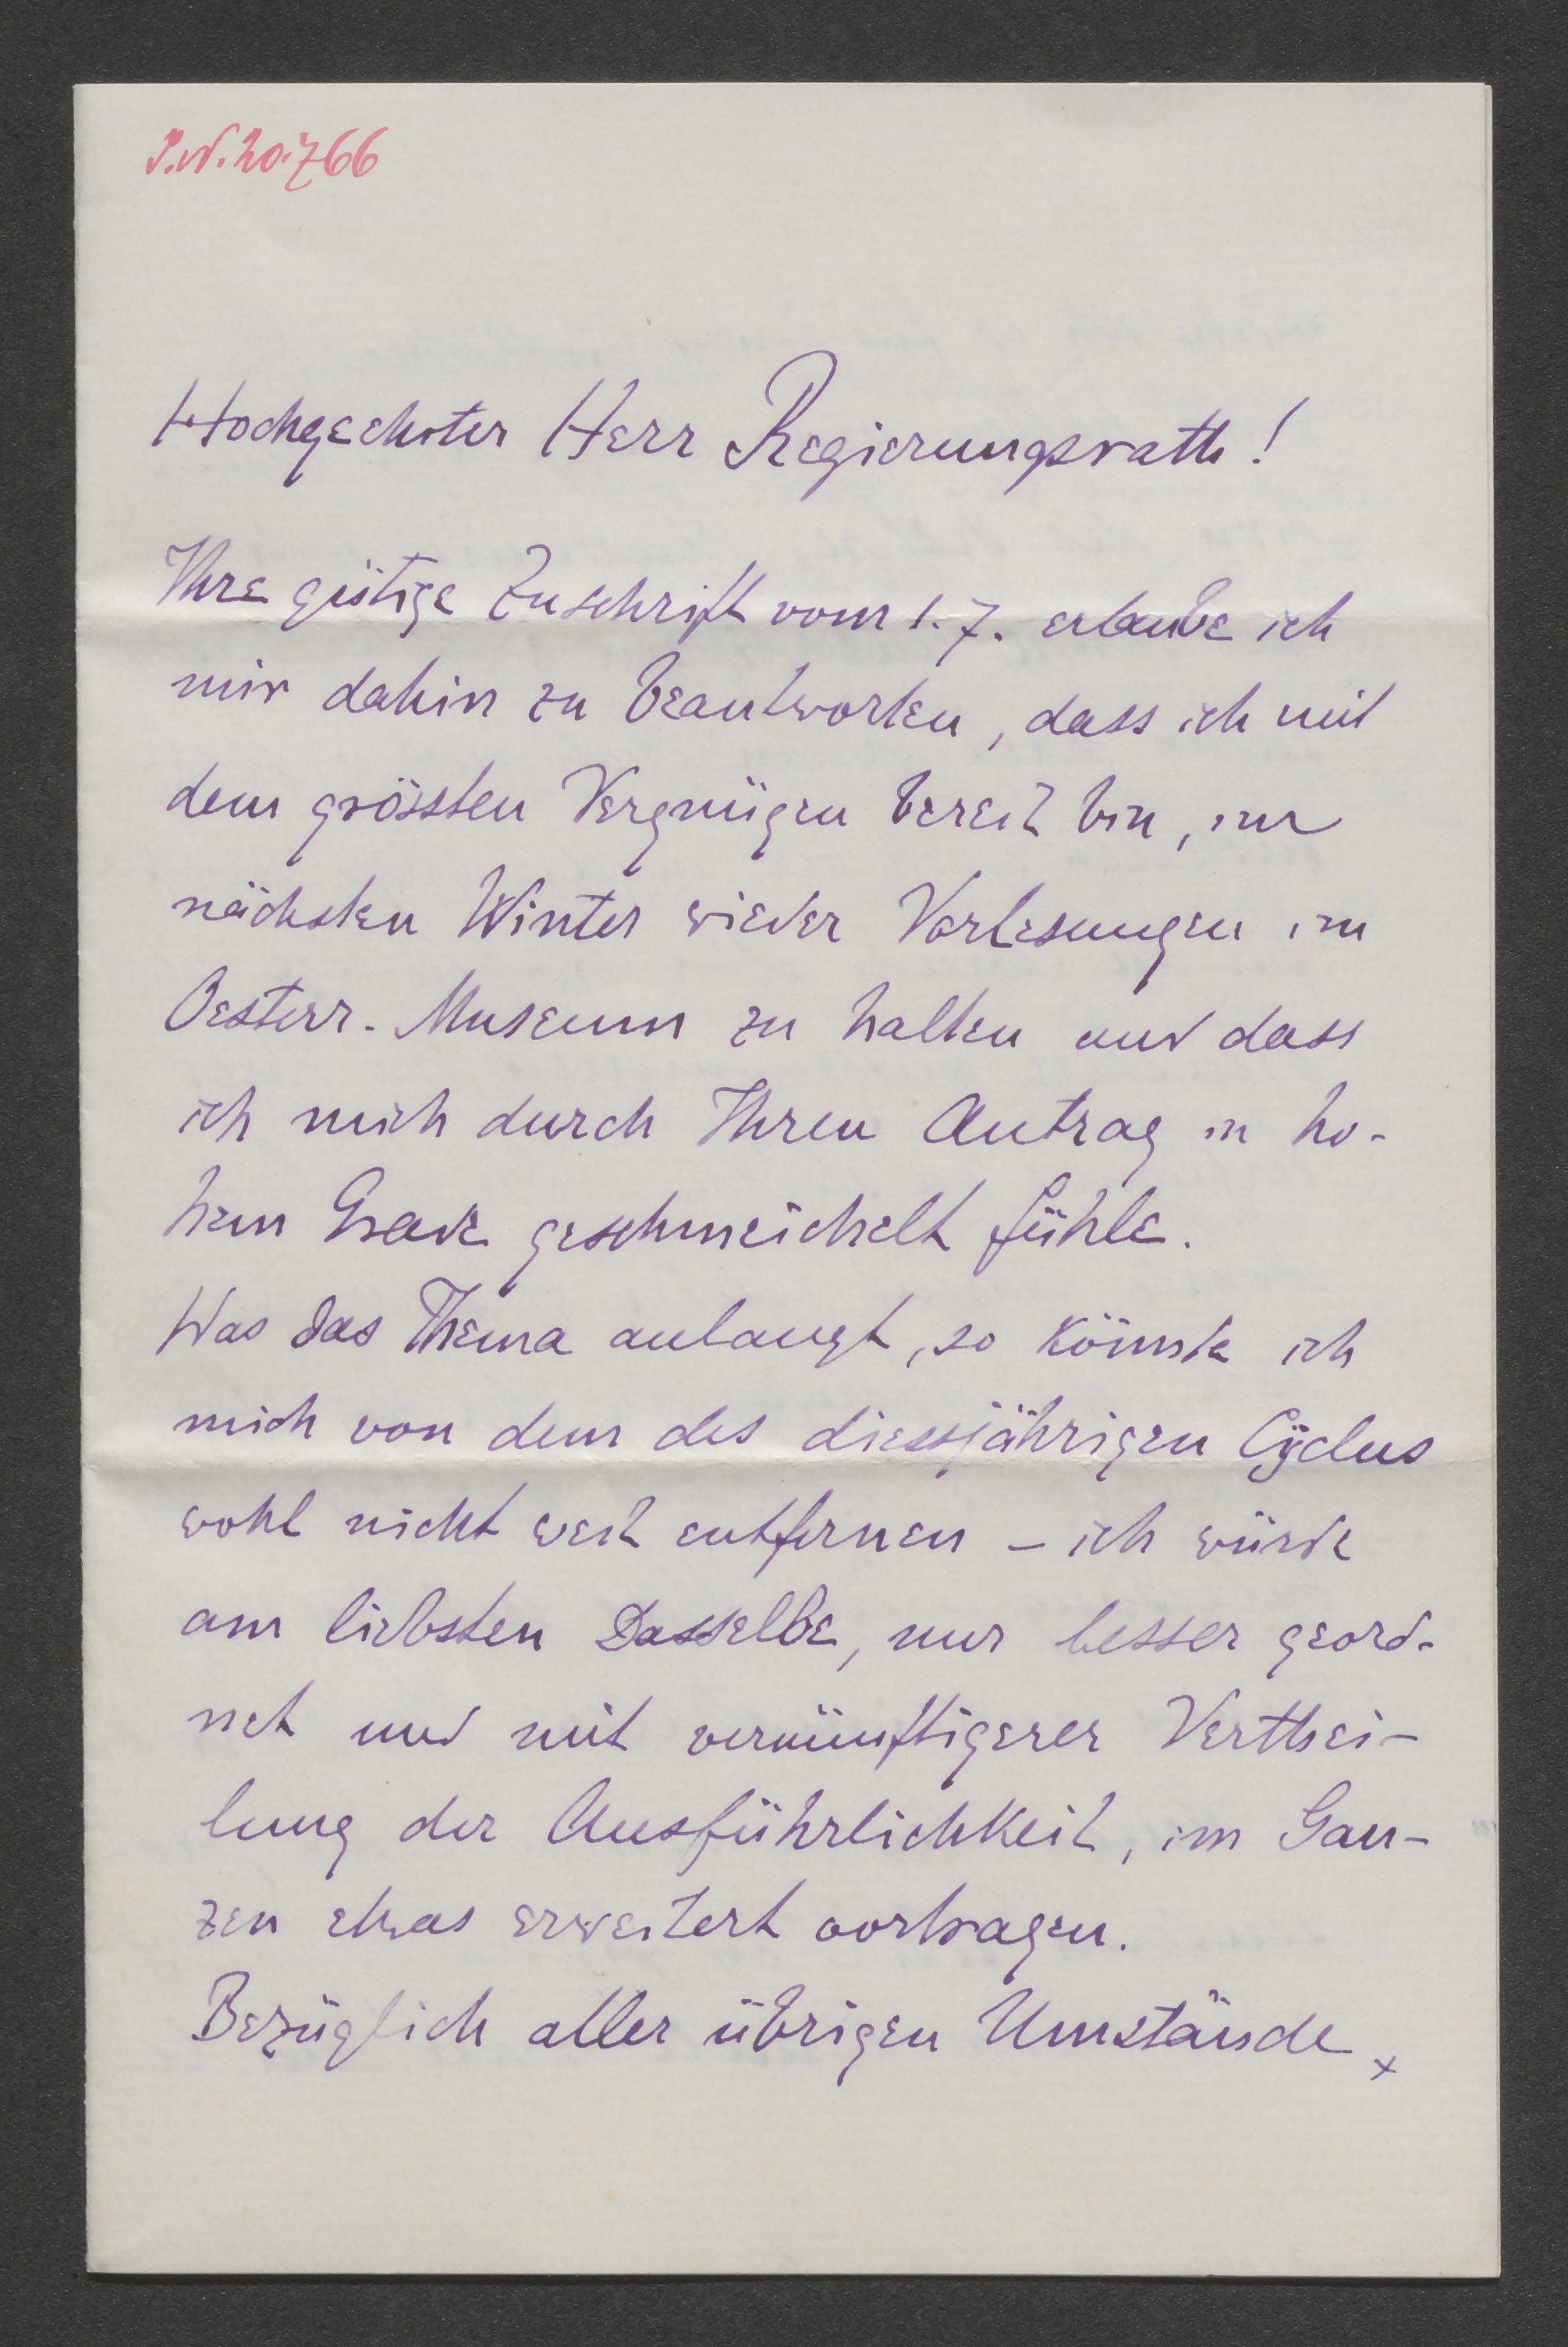 I.N. 20.766
Hochgeehrter Herr Regierungsrath!
Ihre gütige Zuschrift vom 1. 7. erlaube ich
mir dahin zu beantworten, dass ich mit
dem grössten Vergnügen bereit bin, im
nächsten Winter wieder Vorlesungen im
Oesterr. Museum zu halten und dass
ich mich durch Ihren Antrag in ho-
hem Grade geschmeichelt fühle.
Was das Thema anlangt, so könnte ich
mich von dem des diessjährigen Cÿclus
wohl nicht weit entfernen – ich würde
am liebsten Dasselbe, nur besser geord-
net und mit vernünftigerer Verthei-
lung der Ausführlichkeit, im Gan-
zen etwas erweitert vortragen.
Bezüglich aller übrigen Umstände ×